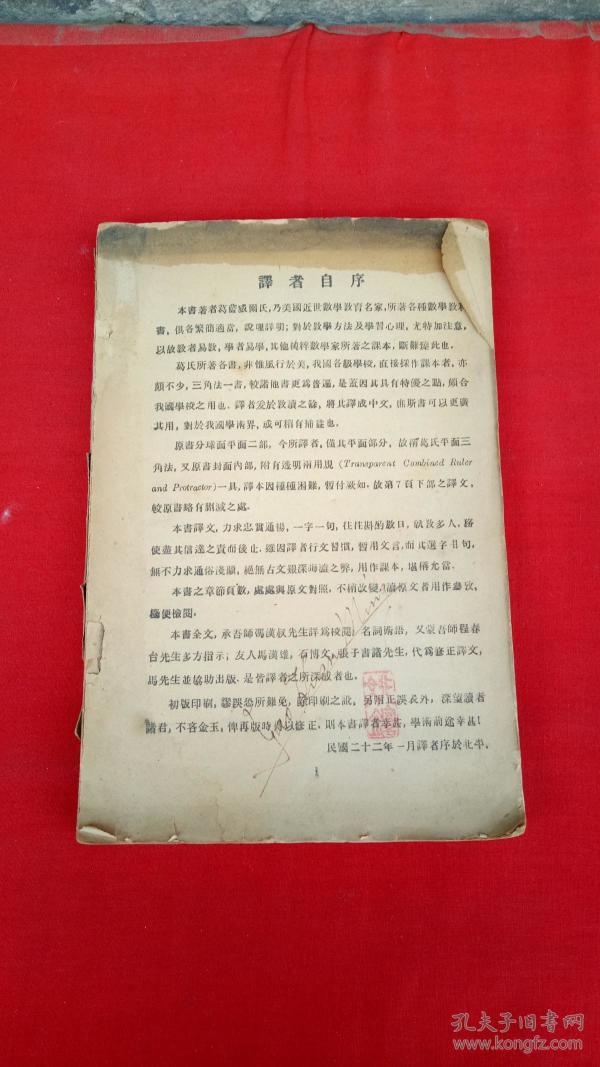 譯者自序
本書著者葛蘭威爾氏，乃美國近世數學教育名家，所著各種數學教科
書，俱各繁簡適當，說理詳明；對於教學方法及學習心理，尤特加注意，
以故教者易教，學者易學，其他純粹數學家所著之課本，斷難臻此也。
葛氏所著各書，非惟風行於美，我國各級學校，直接採作課本者，亦
頗不少，三角法一書，較諸他書更爲普遍，是蓋因其具有特優之點，頗合
我國學校之用也。譯者爰於教讀之餘，將其譯成中文，庶斯書可以更廣
其用，對於我國學術界，或可稍有補益也。
原書分球面平面二部，今所譯者，僅其平面部分，故稱葛氏平面三
角法，又原書封面內部，附有透明兩用規 (Transparent Combined Ruler
and Protractor) 一具，譯本因種種困難，暫付厥如。故第7頁下部之譯文，
較原書略有刪減之處。
本書譯文，力求忠實通暢，一字一句，往往斟酌數日，就教多人，務
使盡其信達之責而後止。雖因譯者行文習慣，暫用文言，而其選字甘句，
無不力求通俗淺顯，絕無古文艱深晦澀之弊，用作課本，堪稱允當。
本書之章節頁數，處處與原文對照，不稍改變，讀原文者用作參攷，
極便檢閱。
本書全文，承吾師馮漢叔先生詳爲校閱，名詞術語，又蒙吾師程春
台先生多方指示；友人馬漢雄，石博文，張子書諸先生，代爲修正譯文，
馬先生並協助出版，是皆譯者之所深感者也。
初版印刷，謬誤恐所難免，除印刷之訛，另附正誤表外，深望讀者
諸君，不吝金玉，俾再版時得以修正，則本書譯者幸甚，學術前途幸甚！
民國二十二年一月譯者序於北平。
孔夫子旧书网
www.kongfz.com